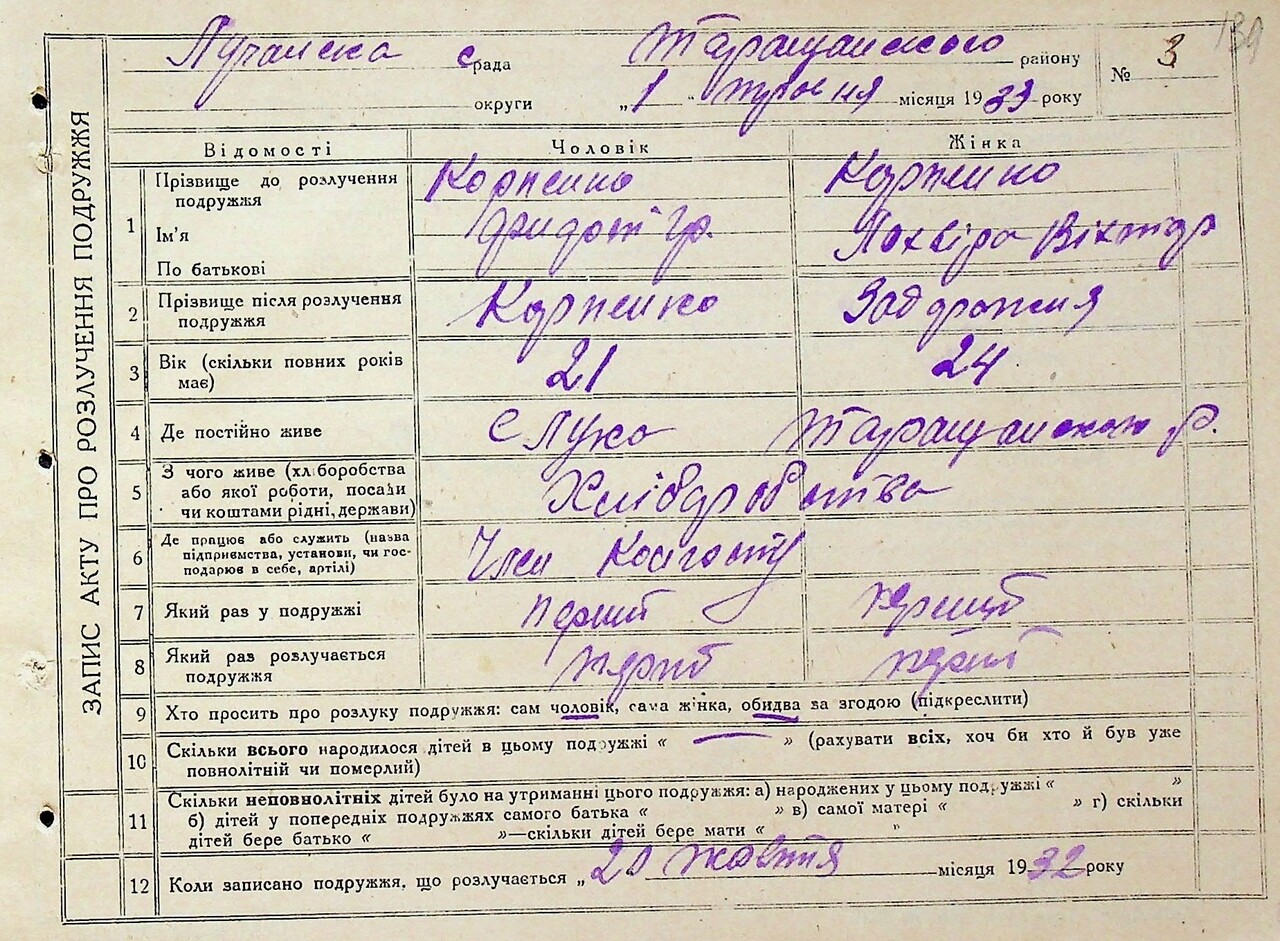 139
Лучанска с рада Таращанского району № 3
округи „1“ травня місяця 1933 року
ЗАПИС АКТУ ПРО РОЗЛУЧЕННЯ ПОДРУЖЖЯ
Відомості Чоловік Жінка
1 Прізвище до розлучення подружжя Карпенко Карпенко
Ім'я Гр. Віктор
По батькові
2 Прізвище після розлучення подружжя Карпенко Задорожня
3 Вік (скільки повних років має) 21 24
4 Де постійно живе с Лука Таращанского р.
5 З чого живе (хліборобства або якої роботи, посади чи коштами рідні, держави) Хліборобства
6 Де працює або служить (назва підприємства, установи, чи господарює в себе, артілі) Член Колгоспу
7 Який раз у подружжі перший перший
8 Який раз розлучається подружжя
9 Хто просить про розлуку подружжя: сам чоловік, сама жінка, обидва за згодою (підкреслити)
10 Скільки всього народилося дітей в цьому подружжі « — » (рахувати всіх, хоч би хто й був уже
повнолітній чи померлий)
11 Скільки неповнолітніх дітей було на утриманні цього подружжя: а) народжених у цьому подружжі « »
б) дітей у попередніх подружжях самого батька « » в) самої матері « » г) скільки
дітей бере батько « »—скільки дітей бере мати « "
12 Коли записано подружжя, що розлучається „20 жовття місяця 1932 року